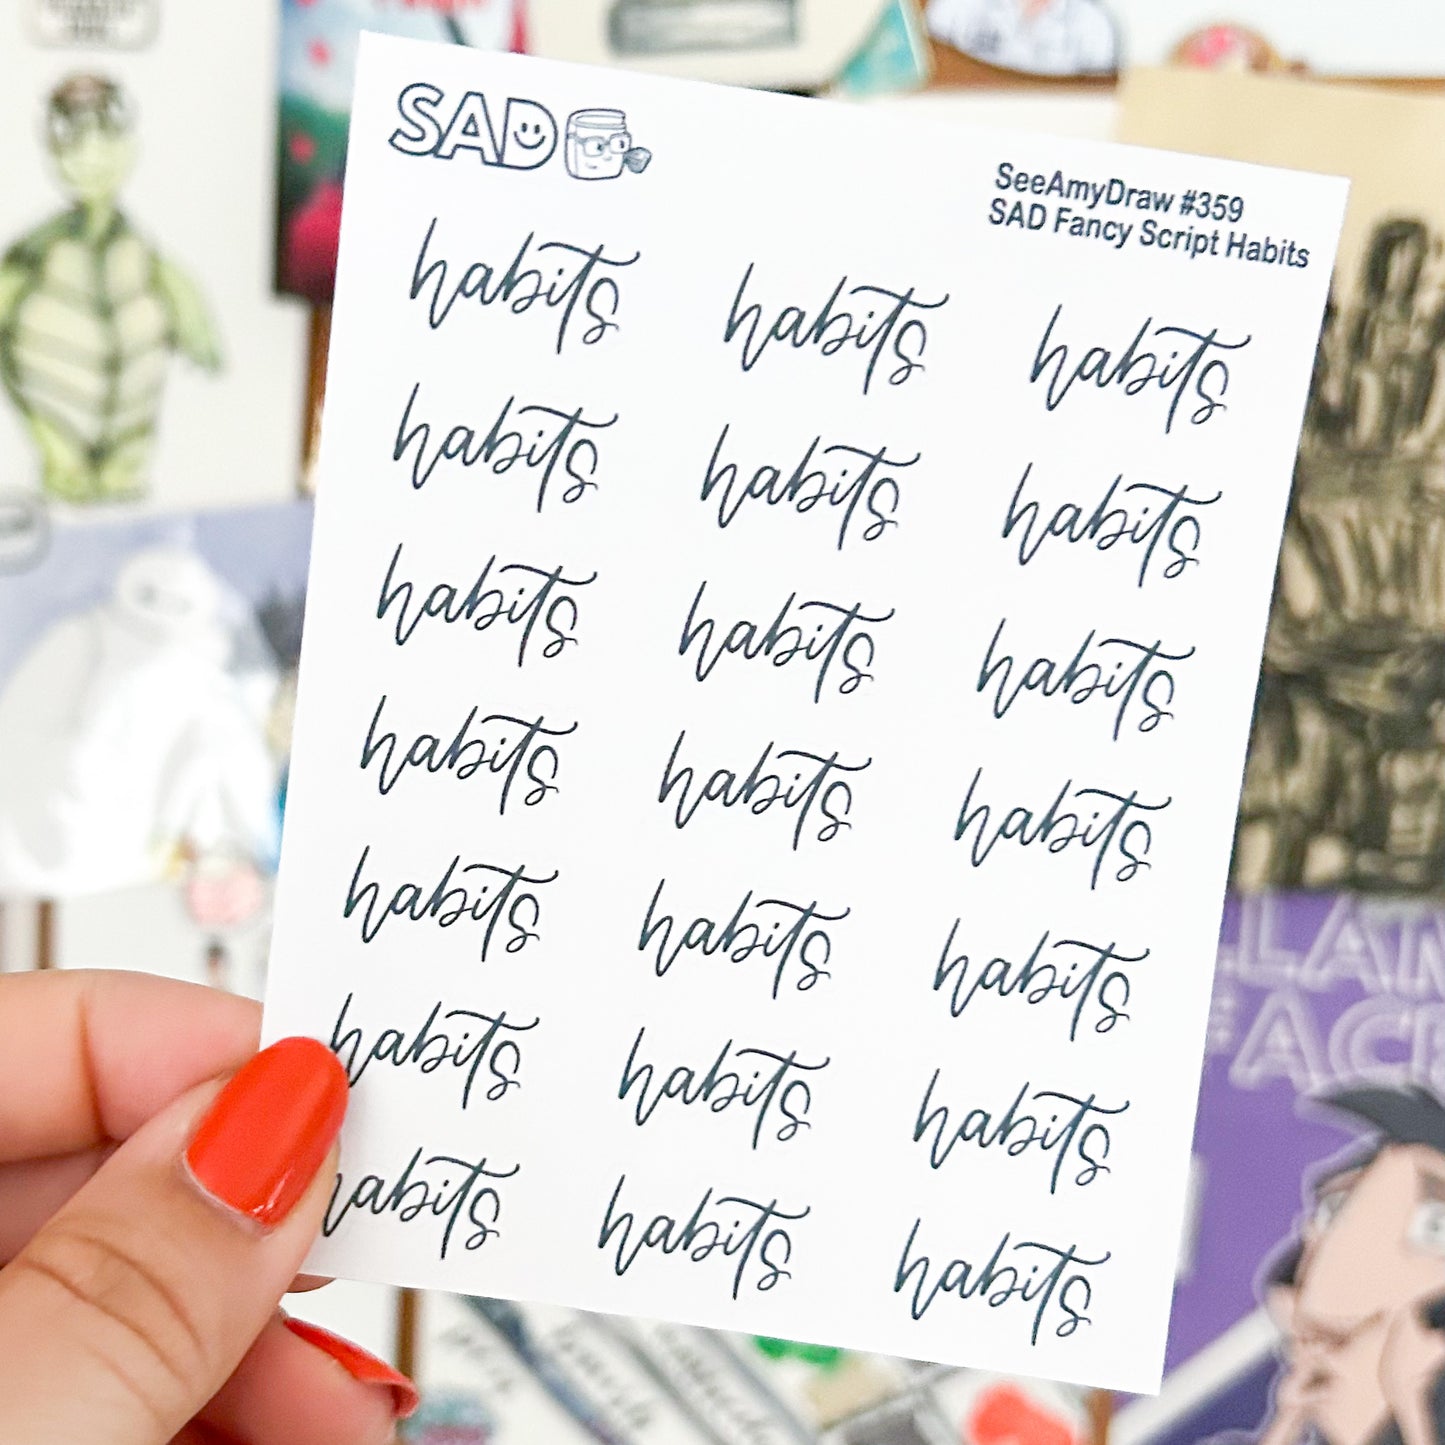 SAD
SeeAmyDraw #359
SAD Fancy Script Habits
habits habits habits
habits habits habits
habits habits habits
habits habits habits
habits habits habits
habits habits habits
habits habits habits